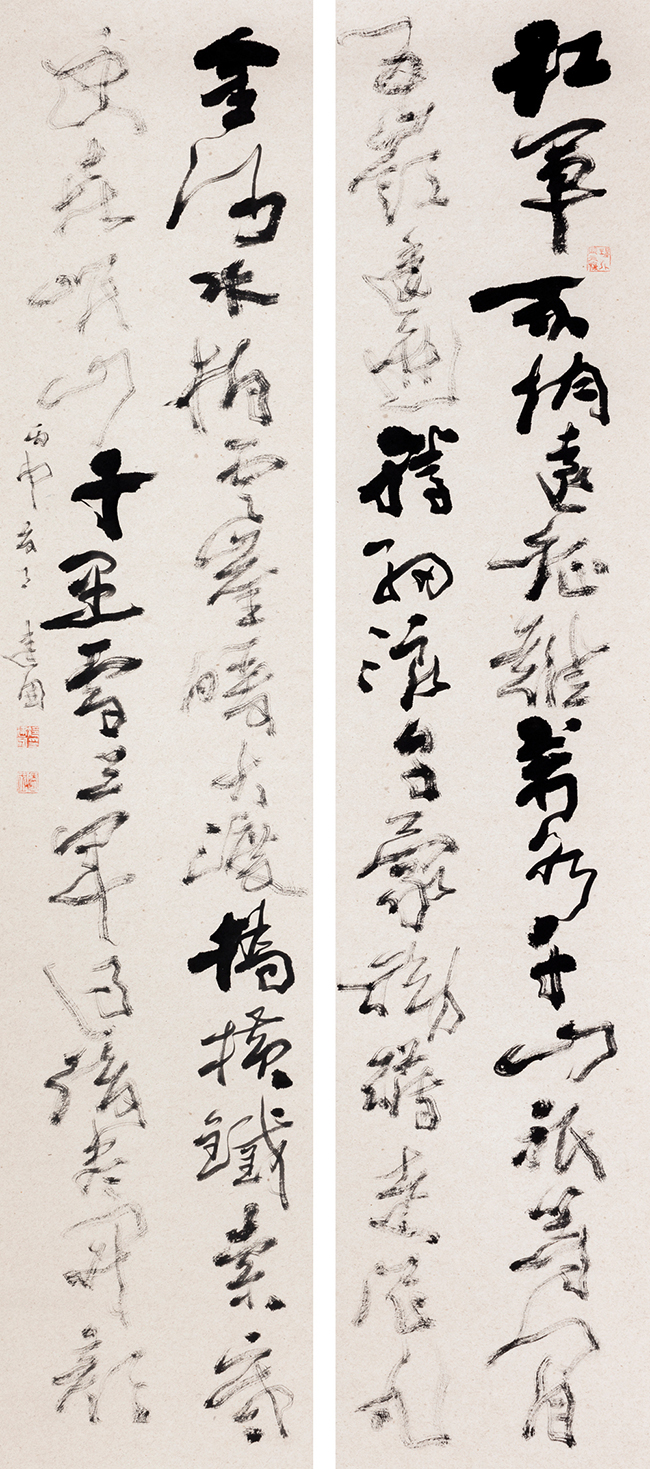 紅軍不怕遠征難萬水千山祇等閒
五嶺逶迤騰細浪烏蒙磅礴走泥丸
金沙水拍雲崖暖大渡橋橫鐵索寒
更喜岷山千里雪三軍過後盡開顏
丙申 建國